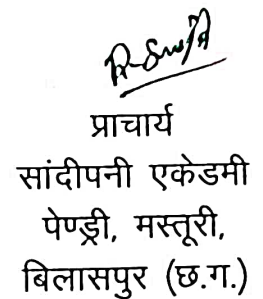 प्राचार्य
सांदीपनी एकेडमी
पेण्ड्री, मस्तूरी,
बिलासपुर (छ.ग.)